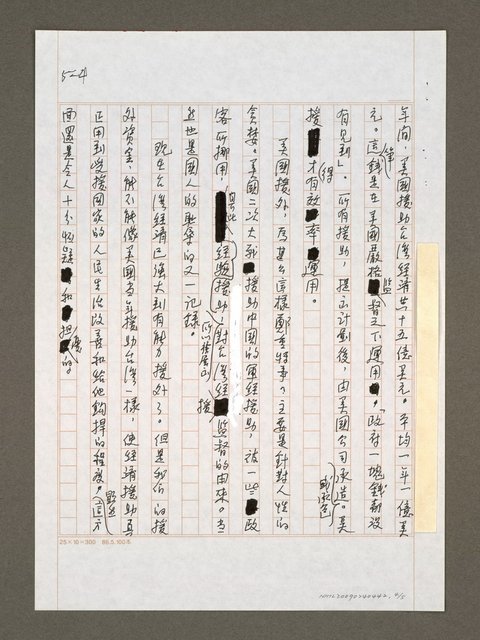 5-4
年間，美國援助台灣經濟共十五億美元。平均一年一億美
元。這筆錢是在美國嚴格監督之下運用。「政府一塊錢都沒
有見到」。所有援助，提出計劃後，由美國公司承造。美
援得才有效率運用。
美國援外，為甚么這樣鄭重特事？主要是針對人性的
貪婪。美國二次大戰援助中國的軍經援助，被一些政
客所挪用
經驗援助，對台灣經援監督的由來。當
然也是國人的恥辱的又一記錄。
現在台灣經濟已強大到有能力援外了。但是我們的援
外資金，能不能像美國當年援助台灣一樣，使經濟援助真
正用到受援國家的人民生活改善和給他的程度。這方
面還是令人十分懷疑和擔憂的。
25×10=300 86.5.100本
NMTL20090240442, 4/5